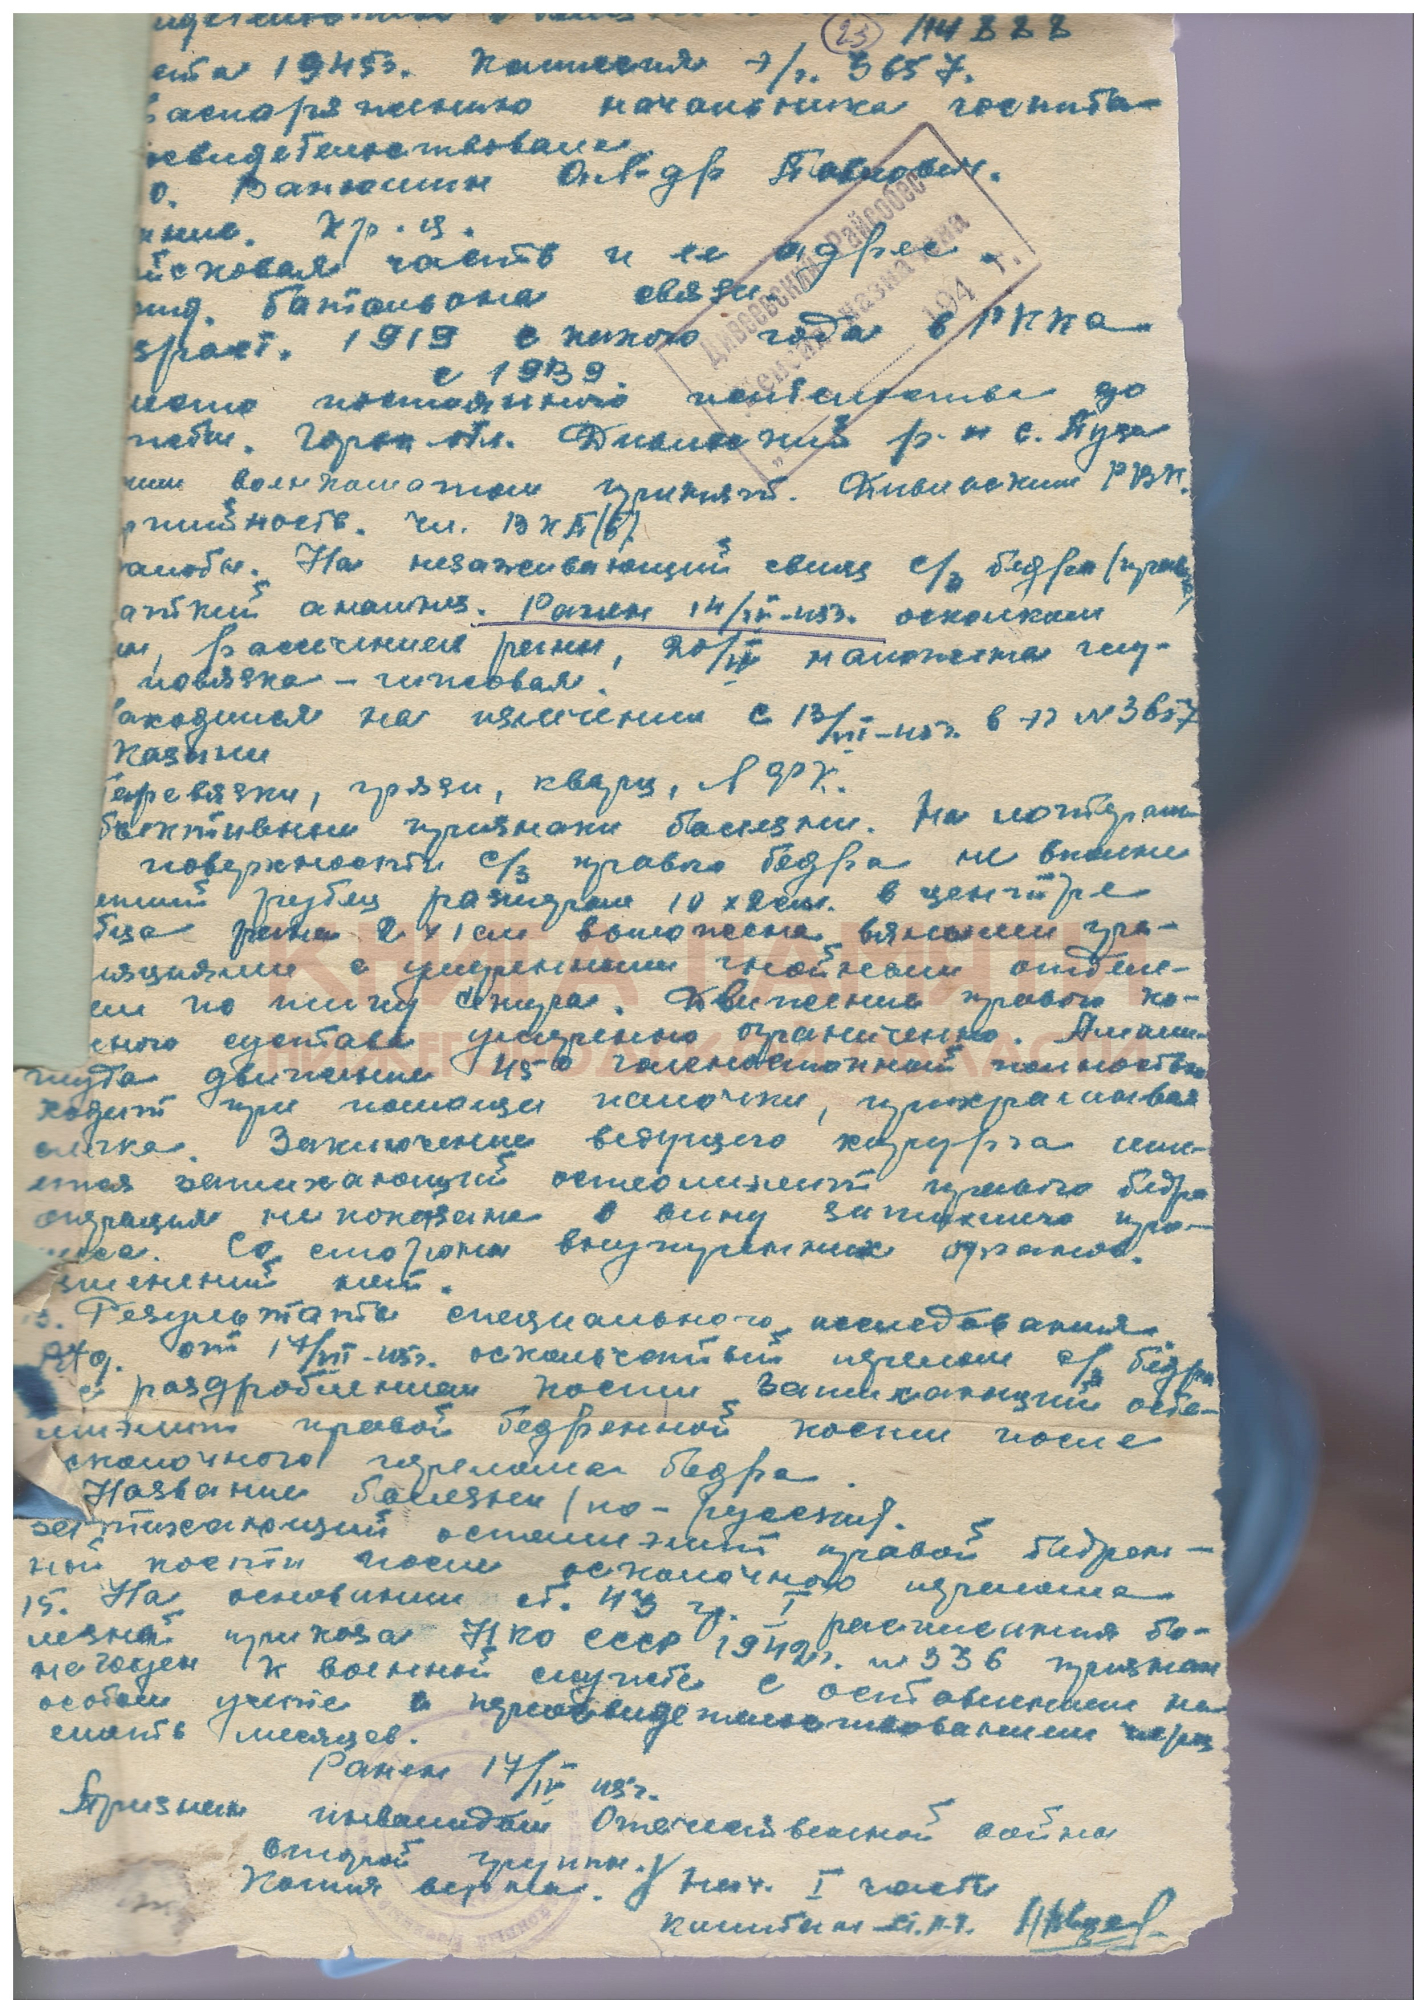 23 114888
ста 1945г. Комиссия э/г. 3657.
распоряжению начальника госпита-
свидетельствован
о. Ванюшин Ал-др Павлович.
ание. Кр-ц.
йсковая часть и ее адрес.
батальона связи
зраст. 1919 с какого года в РККА
с 1939.
место постоянного жительства до
Горьк. обл. Дивеевский р-н с. Пуза
ким военкоматом призват. Дивеевским РВК.
ртийность. чл. ВКП(б).
алобы. На незаживающий свищ с/з бедра (прав
аткий анамнез. Ранен 14/IV-45г. осколком
ы, рассечением раны, 20/IV наложена глу-
повязка - гипсовая.
аходился на излечении с 13/VII-45г. в эг №3657
Казани
еревязки, грязи, кварц, ЛФК.
бъективные признаки болезни. На
поверхности с/з правого бедра не вполне
рубец размером 10 х 2 см. в центре
бца рана 2 х 1 см выполнена вялыми гра-
нуляциями с умеренным гнойным отделе-
ем по типу свища. Движение правого ко-
ного сустава умеренно ограничено. Ампли-
туда движение 45° голеностопной полностью
ходит при помощи палочки, прихрамывая
слегка. Заключение ведущего хирурга име-
ется затихающий остеомиелит правого бедра
операция не показана в виду затихшего про-
цесса. Со стороны внутренних органов.
зменений нет.
13. Результаты специального исследования
от 17/VII-45г. оскольчатый перелом с/з бедра
с раздроблением кости затихающий осте-
миэлит правой бедренной кости после
сколочного перелома бедра.
Название болезни (по-русски).
затихающий остеомиэлит правой бедрен-
ной кости после осколочного перелома
15. На основании ст. 43 гр. I расписания бо-
лезней приказа НКО СССР 1942г. №336 признан
не годен к военной службе с оставлением на
особом учете с переосвидетельствованием через
шесть месяцев.
Ранен 14/IV 45г.
Признан инвалидом Отечественной войны
второй группы.
Копия верна. Нач. I части
капитан
Дивеевский Райсобес
Пенсия назначена
„ 194 г.
КНИГА ПАМЯТИ
НИЖЕГОРОДСКОЙ ОБЛАСТИ